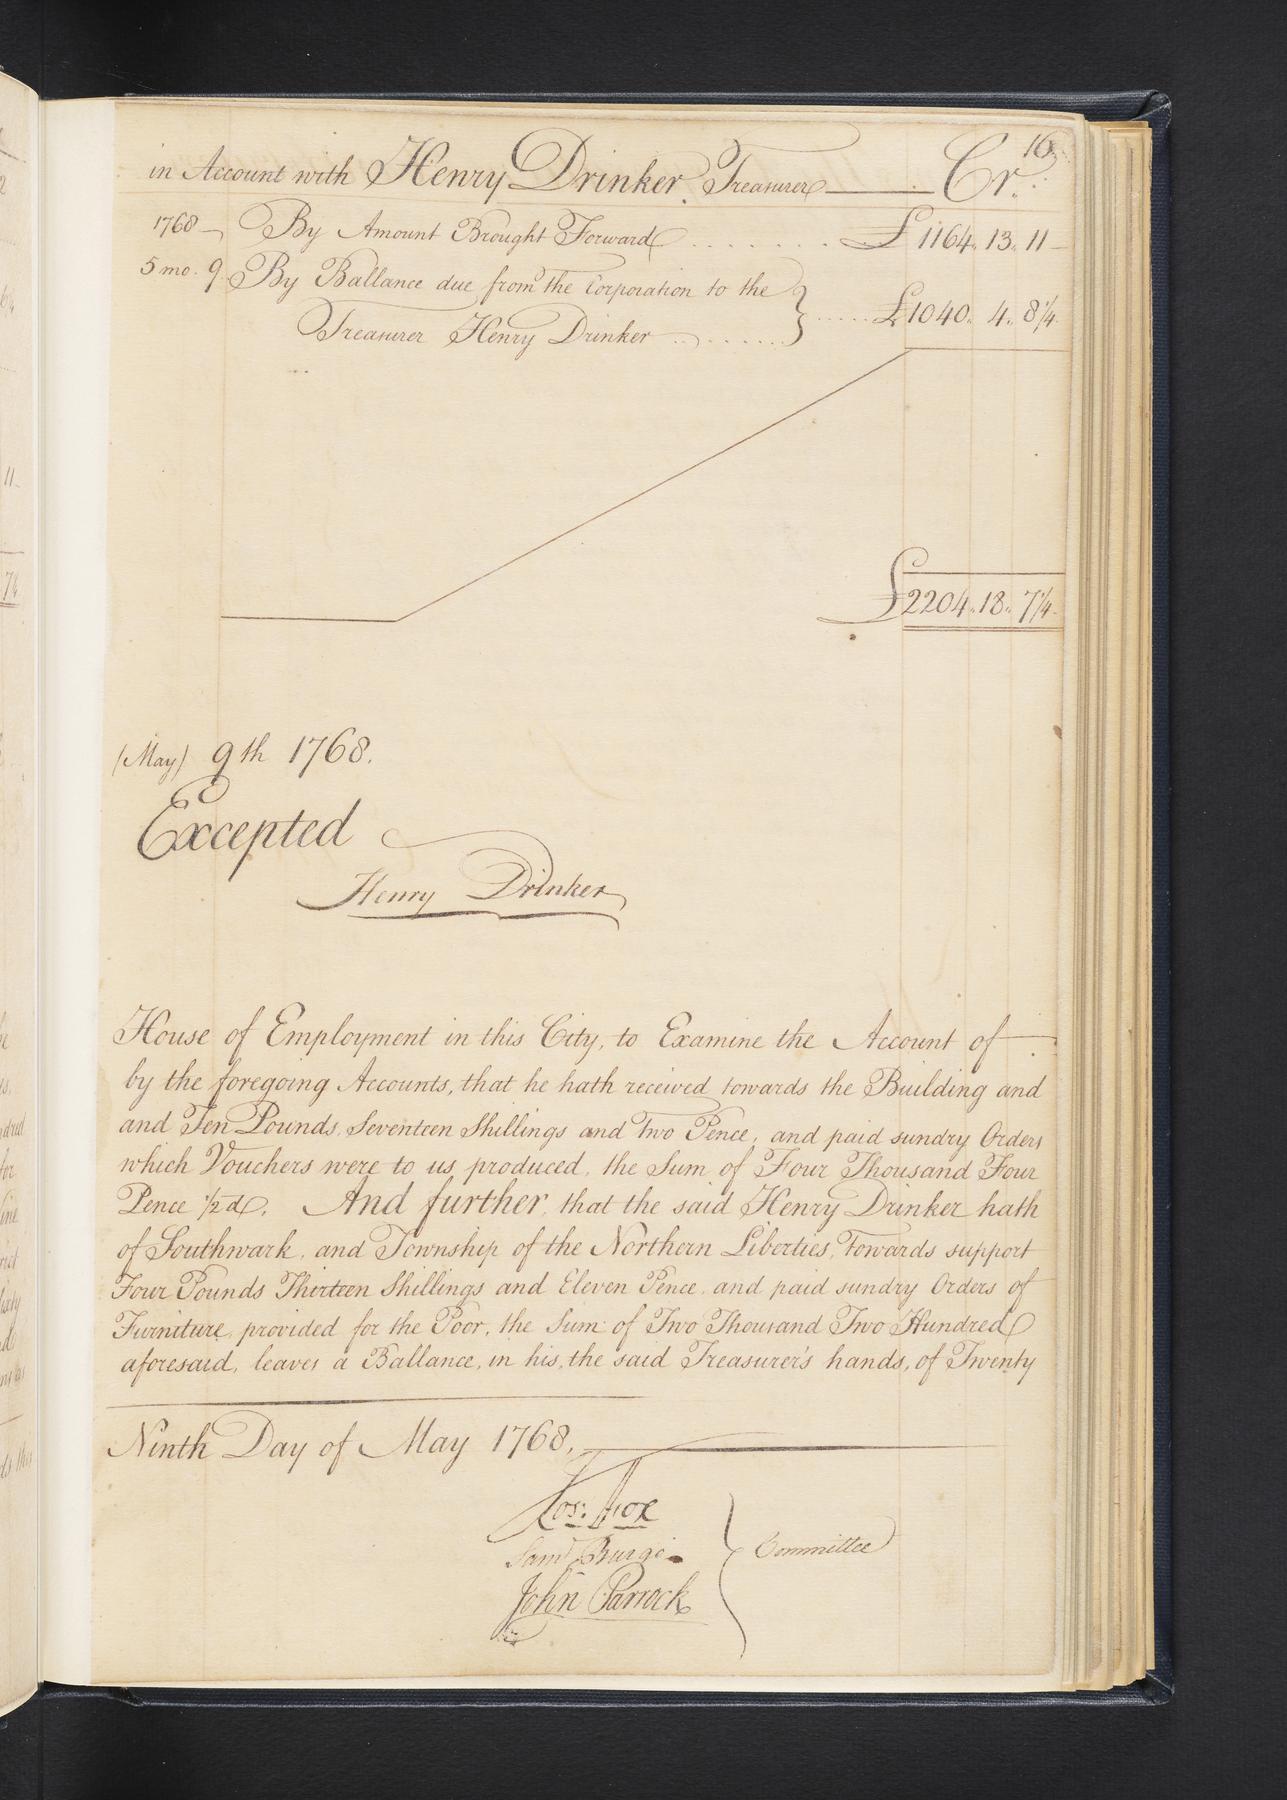 16
in Account with Henry Drinker Treasurer Cr.
1768 By Amount Brought Forward £1164. 13. 11
5 mo. 9 By Ballance due from the Corporation to the
Treasurer Henry Drinker £1040. 4. 8 1/4
£2204. 18. 7 1/4
(May) 9th 1768.
Excepted
Henry Drinker
House of Employment in this City, to Examine the Account of
by the foregoing Accounts, that he hath received towards the Building and
and Ten Pounds, Seventeen Shillings and Two Pence, and paid sundry Orders
which Vouchers were to us produced, the Sum of Four Thousand Four
Pence 1/2 d. And further, that the said Henry Drinker hath
of Southwark, and Township of the Northern Liberties, Towards support
Four Pounds Thirteen Shillings and Eleven Pence, and paid sundry Orders of
Furniture, provided for the Poor, the Sum of Two Thousand Two Hundred
aforesaid, leaves a Ballance, in his, the said Treasurer's hands, of Twenty
Ninth Day of May 1768.
Jos: Fox
Saml Burge
John Parrock
Committee